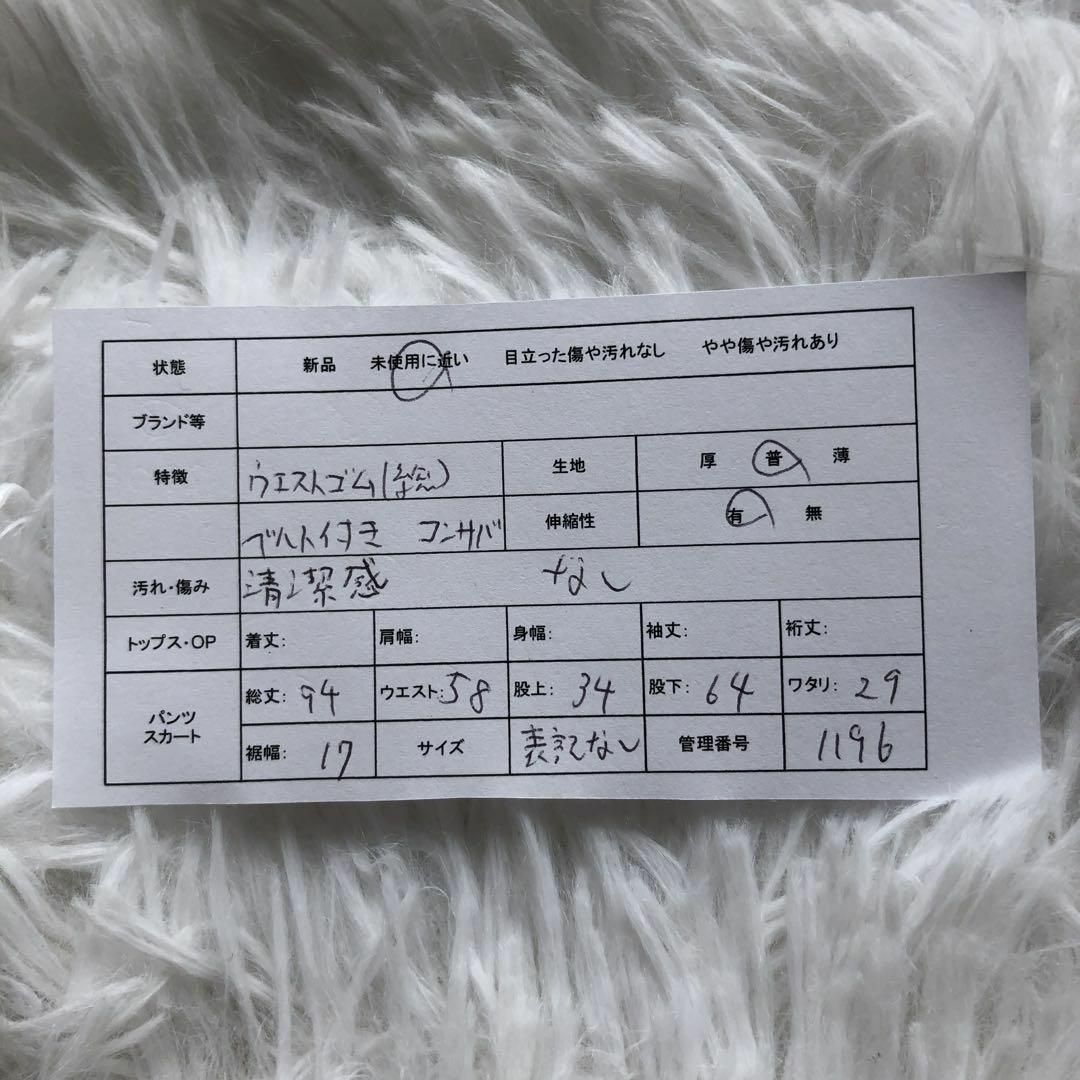 状態 新品 未使用に近い 目立った傷や汚れなし やや傷や汚れあり
ブランド等
特徴 ウエストゴム(総) 生地 厚 普 薄
ベルト付き コンサバ 伸縮性 有 無
汚れ・傷み 清潔感 なし
トップス・OP 着丈: 肩幅: 身幅: 袖丈: 裄丈:
パンツ スカート 総丈: 94 ウエスト: 58 股上: 34 股下: 64 ワタリ: 29
裾幅: 17 サイズ 表記なし 管理番号 1196